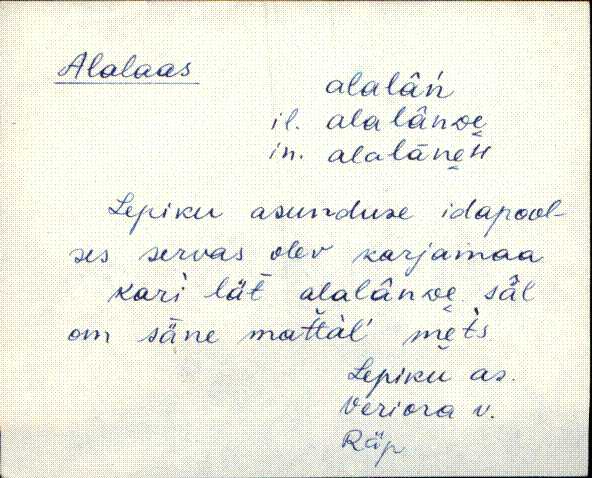 Alalaas
alalâń
il. alalânɒe̬
in. alalāne̬н
Lepiku asunduse idapool-
ses servas olev karjamaa
kari lät̆ alalânɒe̬ säl
om säne mat̆t̀äl' met̀s
Lepiku as.
Veriora v.
Räp